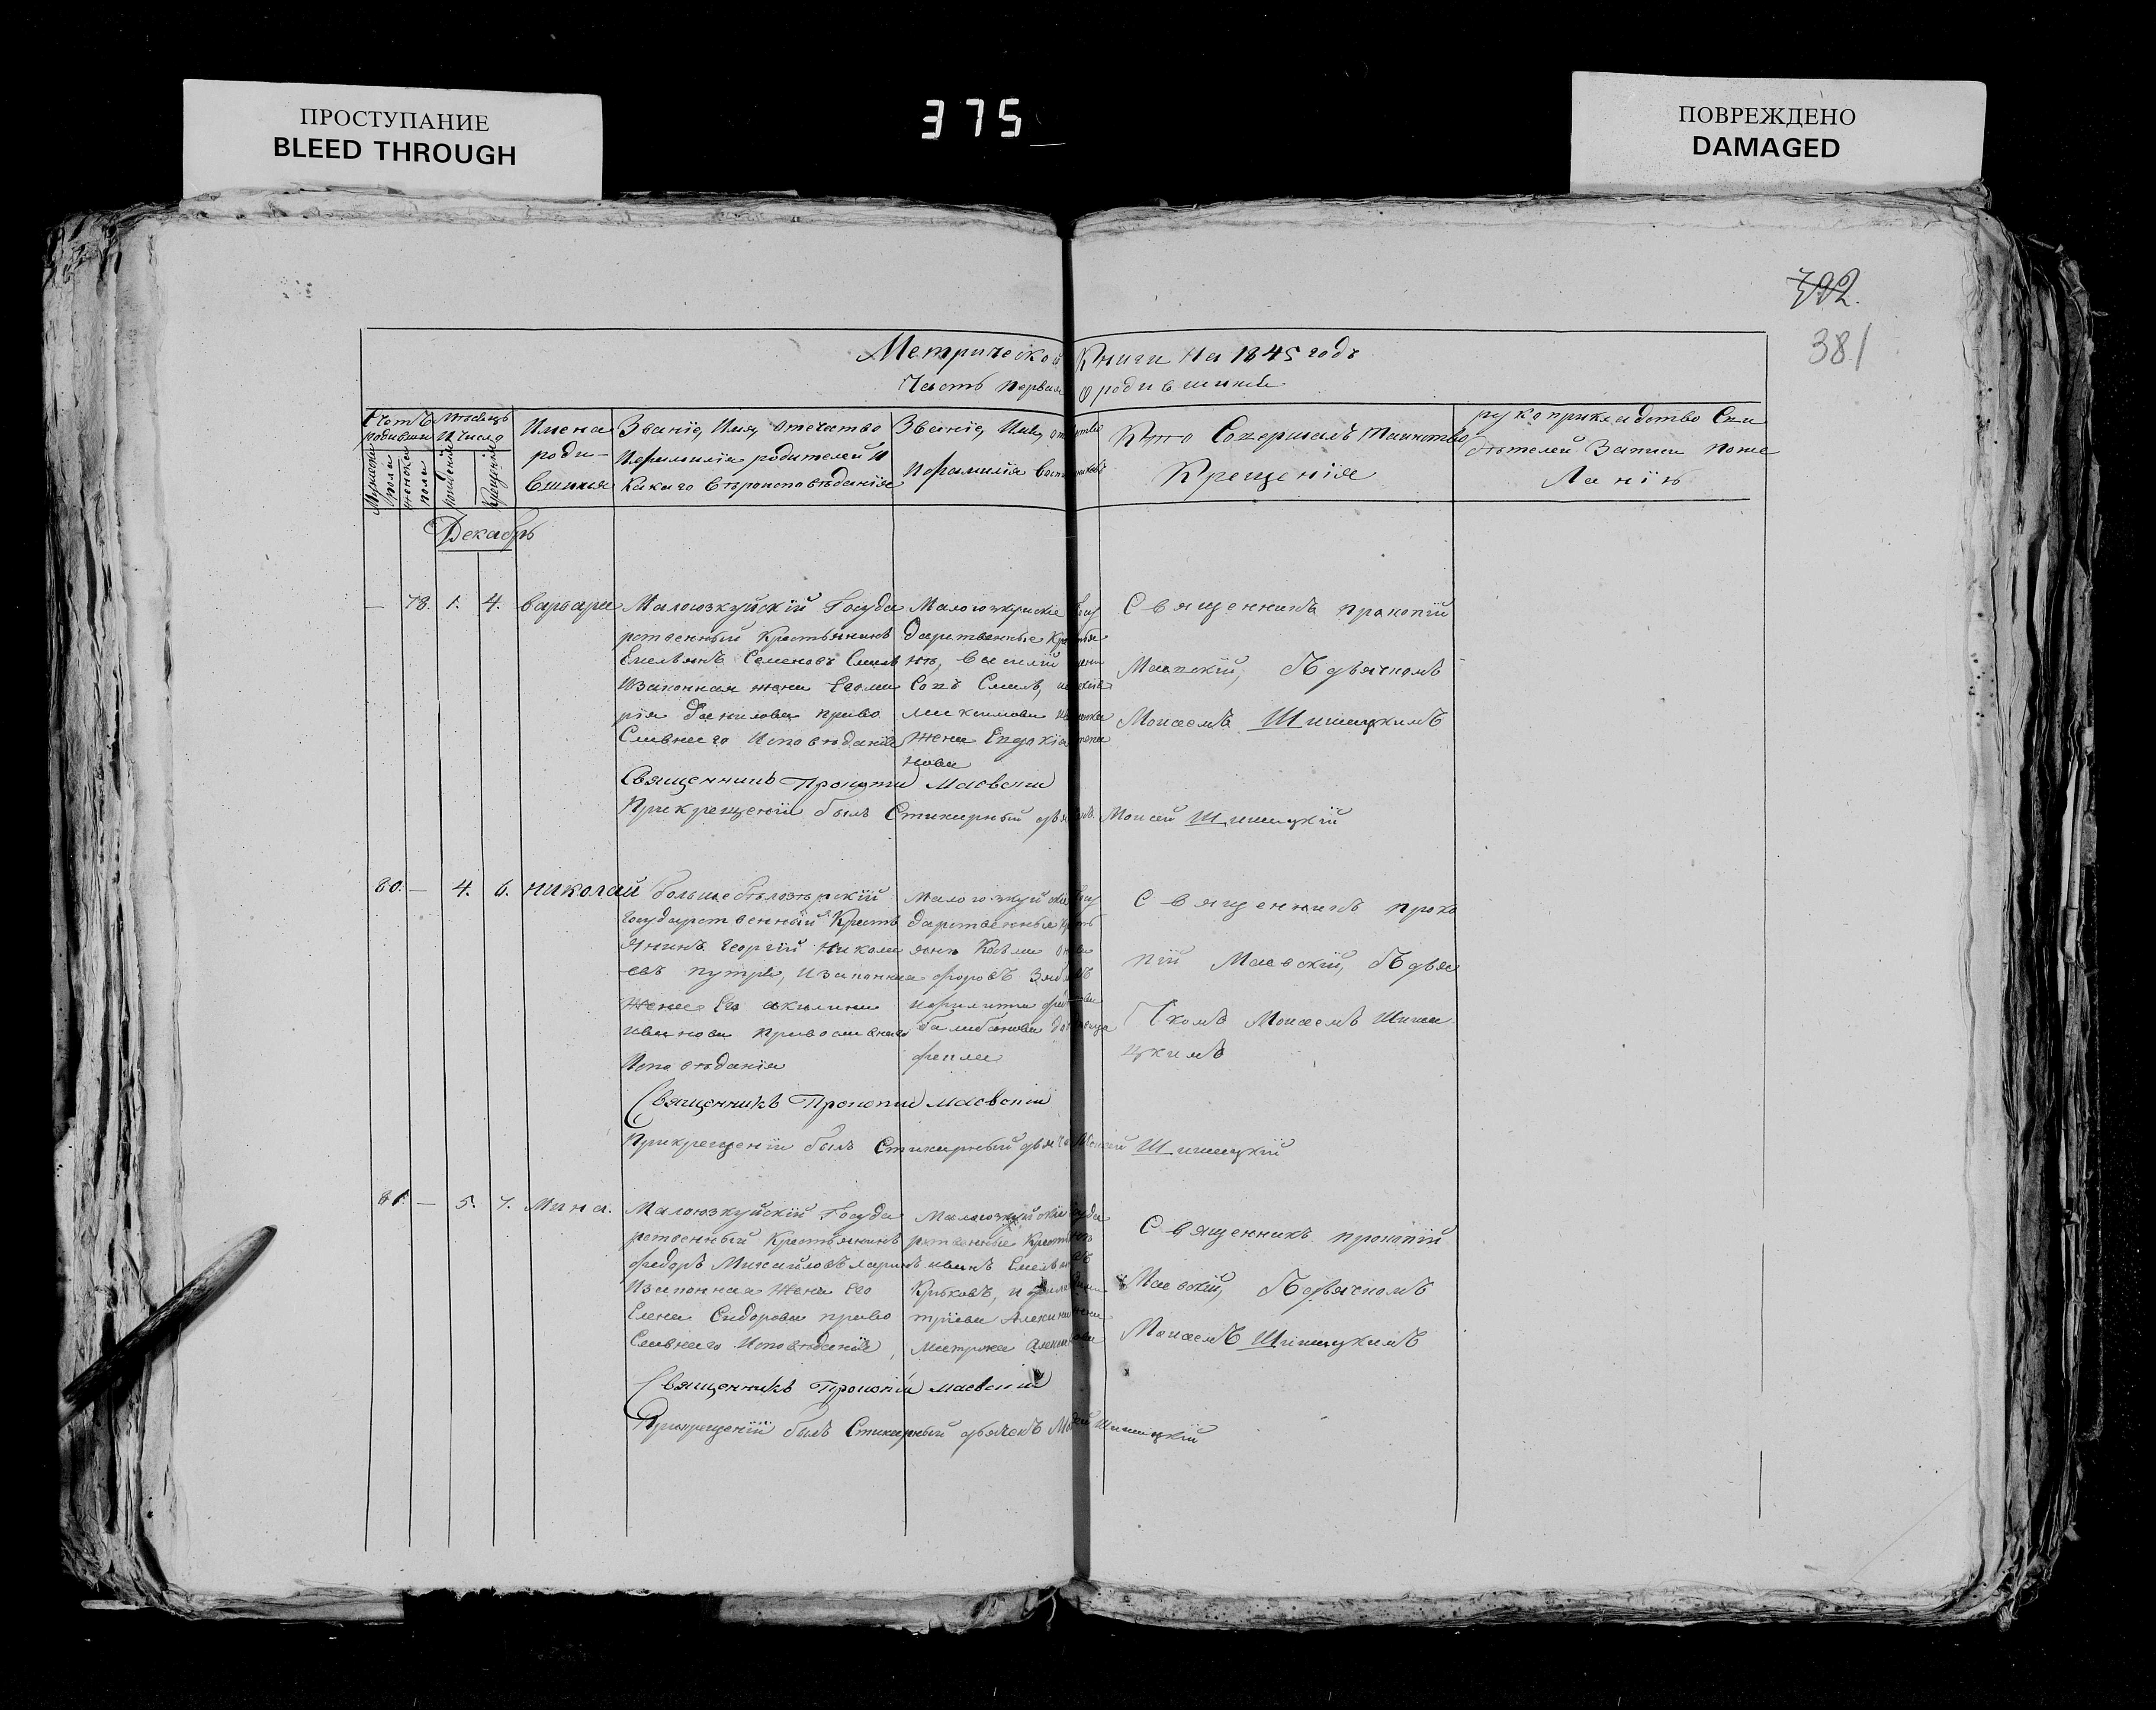 ПРОСТУПАНИЕ
BLEED THROUGH
375
ПОВРЕЖДЕНО
DAMAGED
792.
381
Метрической Книги на 1845 годъ
Часть первая о родившихся
Счетъ родивших
Мужеска пола
женска пола
Месяцъ и число
рождения
крещения
Имена роди-вшихся
Званіе, Имя, Отечество и фамилія родителей и какаго вѣроисповѣданія
Званіе, Имя, отечество и фамилія восприемниковъ
Кто Совершалъ таинство Крещенія
рукоприкладство Свидѣтелей записи по желанію
Декабрь
— 78. 1. 4. Варвара
Малоюзкуйскій Госуда
рственный Крестьянинъ
Емельянъ Семеновъ
и законная жена Его
Данилова право
Славнаго Исповѣданія
Малоюзкуйскіе Госу
дарственные Крестья
не, Василій
жена Евдокія
нова
Священникъ прокопій
Маевскій, съ дьячкомъ
Моисеемъ Шишацкимъ
Священникъ Прокопий Маевский
При крещеніи былъ Стихарный дьячекъ Моисей Шишацкій
80. — 4. 6. Николай
большебѣлозѣрскій
Государственный Крестъ
янинъ Георгій Никола
евъ путря, и законная
жена Его акилина
иванова православнаго
Исповѣданія
Малоюзкуйскіе Госу
дарственные Кресть
яне
фекла
Священникъ проко
пій Маевскій, съ дья
Чкомъ Моисеемъ Шиша
цкимъ
Священникъ Прокопий Маевский
При крещеніи былъ Стихарный дьячекъ Моисей Шишацкій
81. — 5. 7. Мина.
Малоюзкуйскій Госуда
рственный Крестьянинъ
федоръ Михайловъ
и законная жена Его
Елена Сидорова право
Славнаго Исповѣданія,
Малоюзкуйскіе Госуда
рственные Крестьяне
иванъ Емельяновъ
Священникъ прокопій
Маевскій, съ дьячкомъ
Моисеемъ Шишацкимъ
Священникъ Прокопий Маевский
При крещеніи былъ Стихарный дьячекъ Моисей Шишацкій